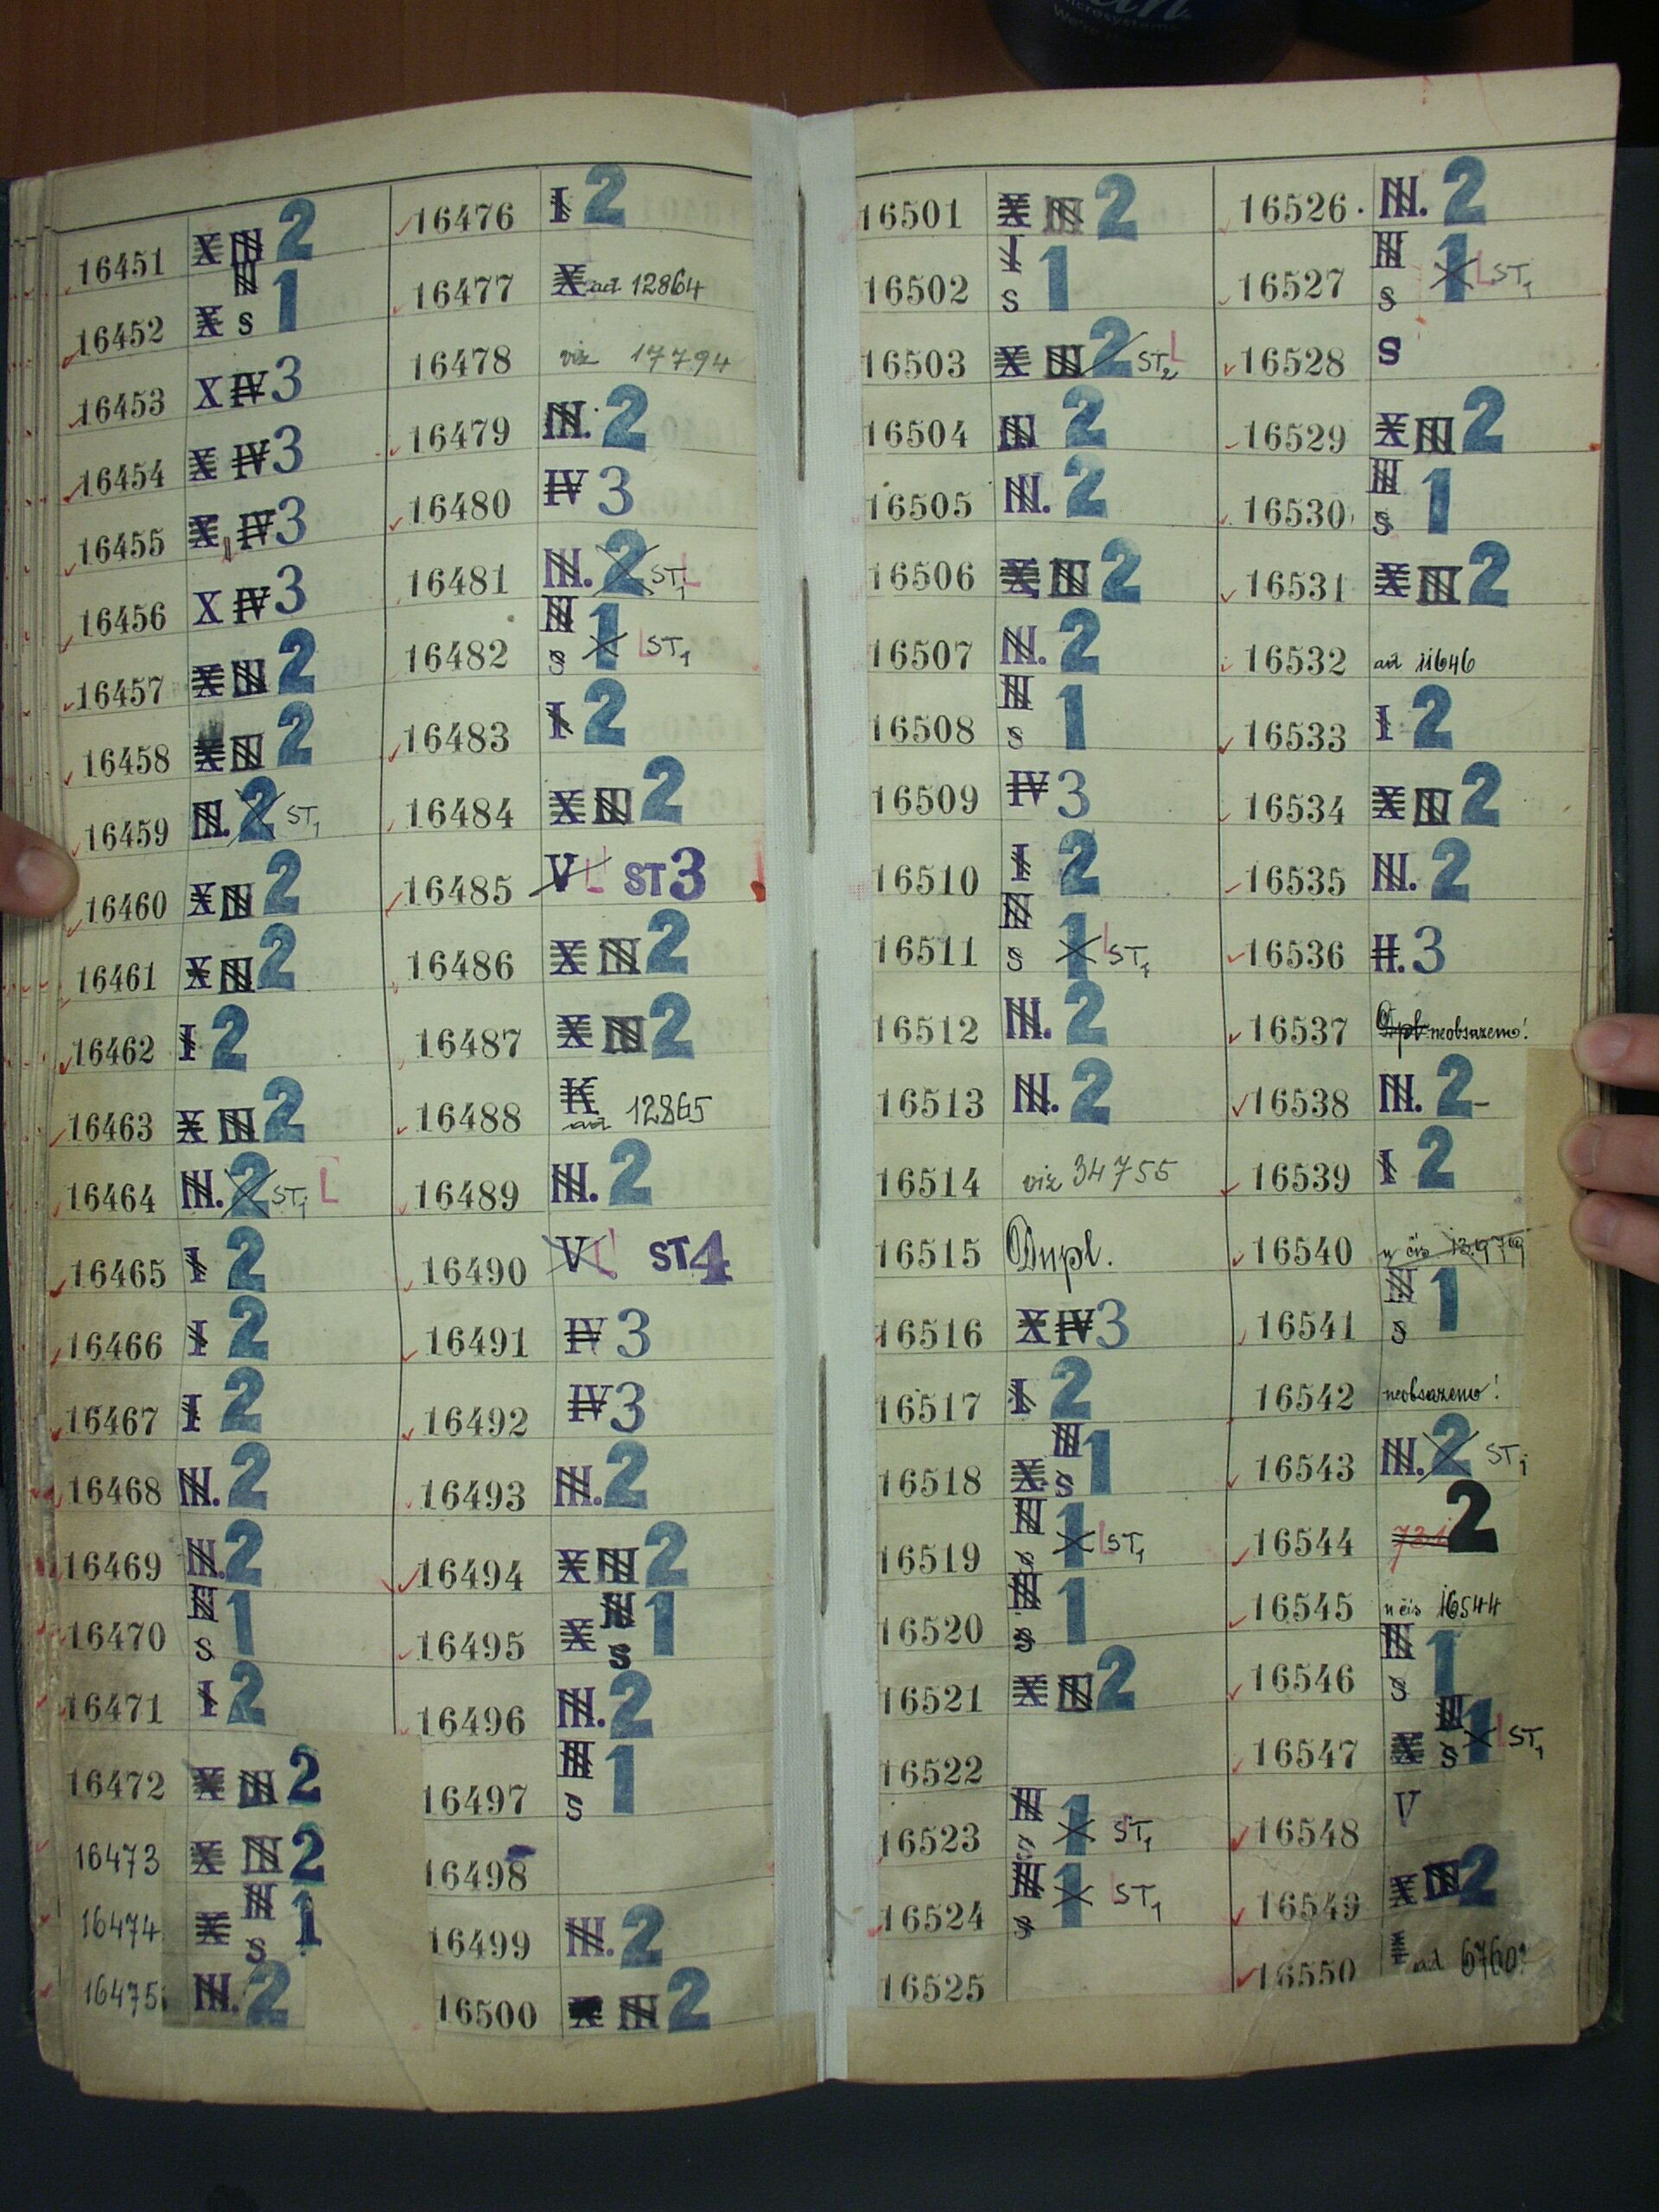 16451 X III 2
16452 X III S 1
16453 X IV 3
16454 X IV 3
16455 X IV 3
16456 X IV 3
16457 X III 2
16458 X III 2
16459 III. 2 ST1
16460 X III 2
16461 X III 2
16462 I 2
16463 X III 2
16464 III. 2 ST1 L
16465 I 2
16466 I 2
16467 I 2
16468 III. 2
16469 III. 2
16470 III S 1
16471 I 2
16472 X III 2
16473 X III 2
16474 X III S 1
16475 III. 2
16476 I 2
16477 X ad 12864
16478 viz 17794
16479 III. 2
16480 IV 3
16481 III. 2 ST1 L
16482 III S 1 L ST1
16483 I 2
16484 X III 2
16485 V L ST 3
16486 X III 2
16487 X III 2
16488 K ad 12865
16489 III. 2
16490 V L ST 4
16491 IV 3
16492 IV 3
16493 III. 2
16494 X III 2
16495 X III S 1
16496 III. 2
16497 III S 1
16498
16499 III. 2
16500 X III 2
16501 X III 2
16502 I S 1
16503 X III 2 ST2 L
16504 III 2
16505 III. 2
16506 X III 2
16507 III. 2
16508 III S 1
16509 IV 3
16510 I 2
16511 III S 1 L ST1
16512 III. 2
16513 III. 2
16514 viz 34755
16515 Dupl.
16516 X IV 3
16517 I 2
16518 X III S 1
16519 III S 1 L ST1
16520 III S 1
16521 X III 2
16522
16523 III S 1 ST1
16524 III S 1 L ST1
16525
16526 III. 2
16527 III S 1 L ST1
16528 S
16529 X III 2
16530 III S 1
16531 X III 2
16532 ad 11646
16533 I 2
16534 X III 2
16535 III. 2
16536 II. 3
16537 Dupl. neobsazeno!
16538 III. 2
16539 I 2
16540
16541 III S 1
16542 neobsazeno!
16543 III. 2 ST1
16544 2
16545 u čis 16544
16546 III S 1
16547 X III S 1 L ST1
16548 V
16549 X III 2
16550 ad